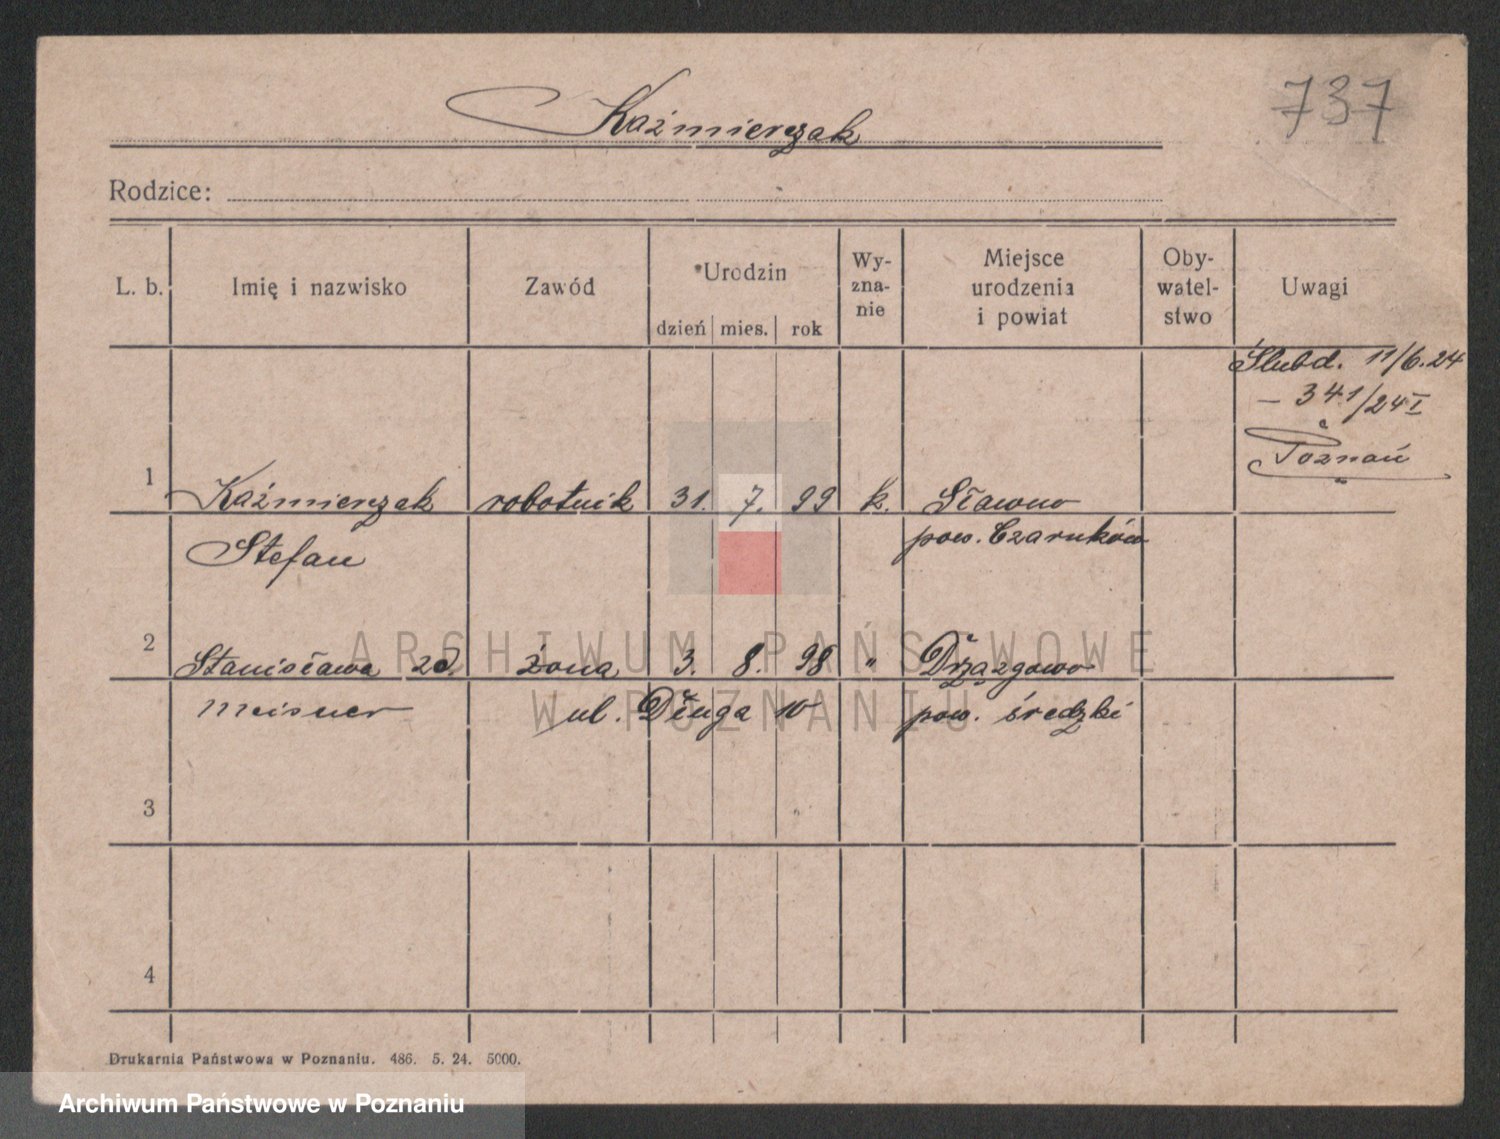 737
Kaźmierczak
Rodzice:
L. b. Imię i nazwisko Zawód Urodzin Wy-zna-nie Miejsce urodzenia i powiat Oby-watel-stwo Uwagi
dzień mies. rok
Ślub d. 11/6.24
– 341/24 I
Poznań
1 Kaźmierczak robotnik 31. 7. 99 k. Sławno
Stefan pow. Czarnków
2 Stanisława zd. żona 3. 8. 98 " Drzązgowo
Meisner ul. Długa 10 pow. średzki
3
4
Drukarnia Państwowa w Poznaniu. 486. 5. 24. 5000.
ARCHIWUM PAŃSTWOWE
W POZNANIU
Archiwum Państwowe w Poznaniu